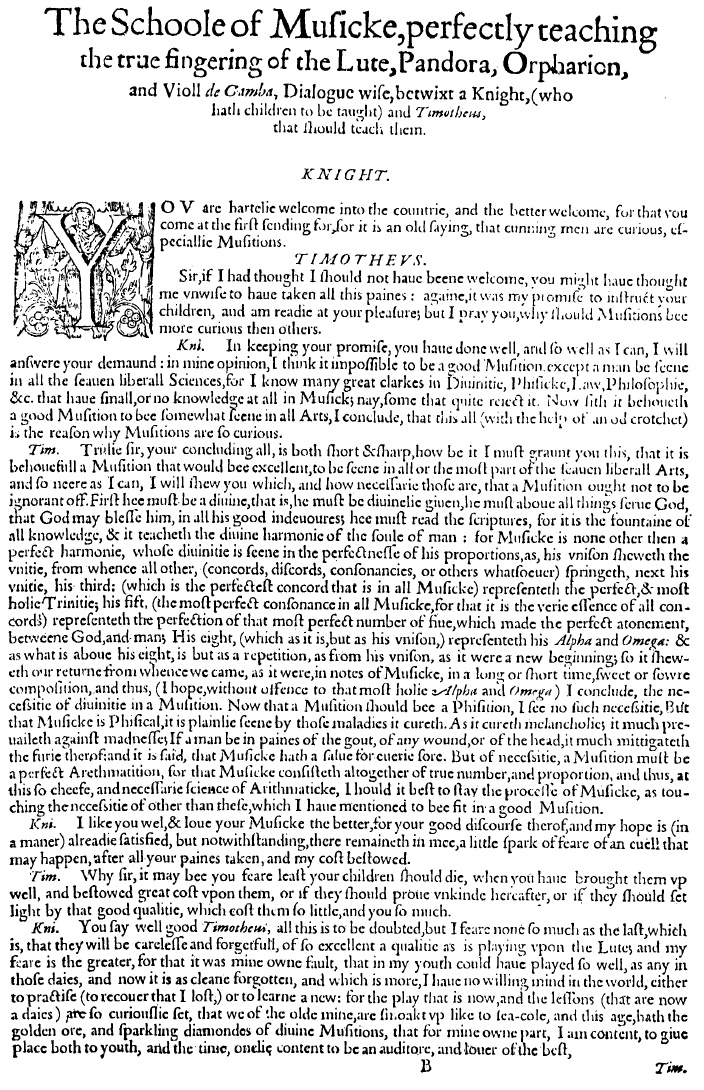 The Schoole of Muſicke, perfectly teaching
the true fingering of the Lute, Pandora, Orpharion,
and Violl de Gamba, Dialogue wiſe, betwixt a Knight, (who
hath children to be taught) and Timotheus,
that ſhould teach them.
KNIGHT.
YOV are hartelie welcome into the countrie, and the better welcome, for that you
come at the firſt ſending for, for it is an old ſaying, that cunning men are curious, eſ-
peciallie Muſitions.
TIMOTHEVS.
Sir, if I had thought I ſhould not haue beene welcome, you might haue thought
me vnwiſe to haue taken all this paines : againe, it was my promiſe to inſtruct your
children, and am readie at your pleaſure; but I pray you, why ſhould Muſitions bee
more curious then others.
Kni. In keeping your promiſe, you haue done well, and ſo well as I can, I will
anſwere your demaund : in mine opinion, I think it impoſſible to be a good Muſition except a man be ſeene
in all the ſeauen liberall Sciences, for I know many great clarkes in Diuinitie, Phiſicke, Law, Philoſophie,
&c. that haue ſmall, or no knowledge at all in Muſick; nay, ſome that quite reiect it. Now ſith it behoueth
a good Muſition to bee ſomewhat ſeene in all Arts, I conclude, that this all (with the help of an od crotchet)
is the reaſon why Muſitions are ſo curious.
Tim. Trulie ſir, your concluding all, is both ſhort & ſharp, how be it I muſt graunt you this, that it is
behouefull a Muſition that would bee excellent, to be ſeene in all or the moſt part of the ſeauen liberall Arts,
and ſo neere as I can, I will ſhew you which, and how neceſſarie thoſe are, that a Muſition ought not to be
ignorant off. Firſt hee muſt be a diuine, that is, he muſt be diuinelie giuen, he muſt aboue all things ſerue God,
that God may bleſſe him, in all his good indeuoures; hee muſt read the ſcriptures, for it is the fountaine of
all knowledge, & it teacheth the diuine harmonie of the ſoule of man : for Muſicke is none other then a
perfect harmonie, whoſe diuinitie is ſeene in the perfectneſſe of his proportions, as, his vniſon ſheweth the
vnitie, from whence all other, (concords, diſcords, conſonancies, or others whatſoeuer) ſpringeth, next his
vnitie, his third; (which is the perfecteſt concord that is in all Muſicke) repreſenteth the perfect, & moſt
holie Trinitie; his fift, (the moſt perfect conſonance in all Muſicke, for that it is the verie eſſence of all con-
cords) repreſenteth the perfection of that moſt perfect number of fiue, which made the perfect atonement,
betweene God, and man; His eight, (which as it is, but as his vniſon,) repreſenteth his Alpha and Omega : &
as what is aboue his eight, is but as a repetition, as from his vniſon, as it were a new beginning; ſo it ſhew-
eth our returne from whence we came, as it were, in notes of Muſicke, in a long or ſhort time, ſweet or ſowre
compoſition, and thus, (I hope, without offence to that moſt holie Alpha and Omega) I conclude, the ne-
ceſſitie of diuinitie in a Muſition. Now that a Muſition ſhould bee a Phiſition, I ſee no ſuch neceſſitie, But
that Muſicke is Phiſical, it is plainlie ſeene by thoſe maladies it cureth. As it cureth melancholie; it much pre-
uaileth againſt madneſſe; If a man be in paines of the gout, of any wound, or of the head, it much mittigateth
the furie therof: and it is ſaid, that Muſicke hath a ſalue for euerie ſore. But of neceſſitie, a Muſition muſt be
a perfect Arethmatition, for that Muſicke conſiſteth altogether of true number, and proportion, and thus, at
this ſo cheefe, and neceſſarie ſcience of Arithmaticke, I hould it beſt to ſtay the proceſſe of Muſicke, as tou-
ching the neceſſitie of other than theſe, which I haue mentioned to bee fit in a good Muſition.
Kni. I like you wel, & loue your Muſicke the better, for your good diſcourſe therof, and my hope is (in
a maner) alreadie ſatisfied, but notwithſtanding, there remaineth in mee, a little ſpark of feare of an euell that
may happen, after all your paines taken, and my coſt beſtowed.
Tim. Why ſir, it may bee you feare leaſt your children ſhould die, when you haue brought them vp
well, and beſtowed great coſt vpon them, or if they ſhould proue vnkinde hereafter, or if they ſhould ſet
light by that good qualitie, which coſt them ſo little, and you ſo much.
Kni. You ſay well good Timotheus, all this is to be doubted, but I feare none ſo much as the laſt, which
is, that they will be careleſſe and forgetfull, of ſo excellent a qualitie as is playing vpon the Lute; and my
feare is the greater, for that it was mine owne fault, that in my youth could haue played ſo well, as any in
thoſe daies, and now it is as cleane forgotten, and which is more, I haue no willing mind in the world, either
to practiſe (to recouer that I loſt,) or to learne a new: for the play that is now, and the leſſons (that are now
a daies) are ſo curiouſlie ſet, that we of the olde mine, are ſmoakt vp like to ſea-cole, and this age, hath the
golden ore, and ſparkling diamondes of diuine Muſitions, that for mine owne part, I am content, to giue
place both to youth, and the time, onelie content to be an auditore, and louer of the beſt,
B Tim.